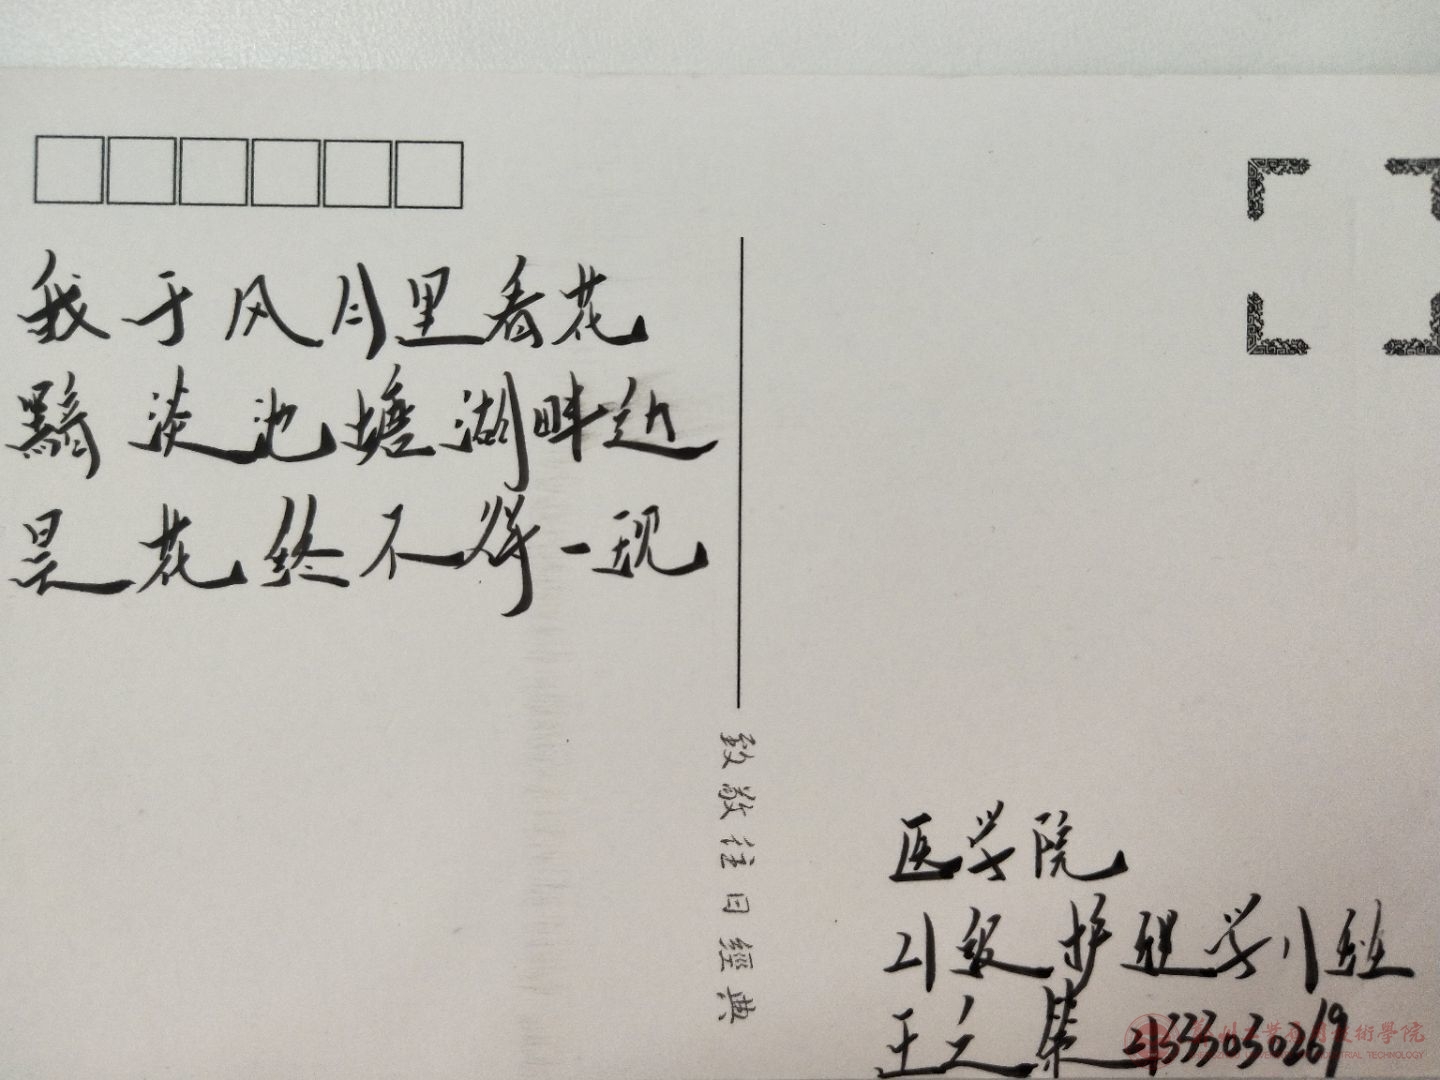 我于风月里看花
黯淡池塘湖畔边
昙花终不得一现
致敬往日經典
医学院
21级护理学八班
王之 21333030269
州工業應用技術學院
INDUSTRIAL TECHNOLOGY